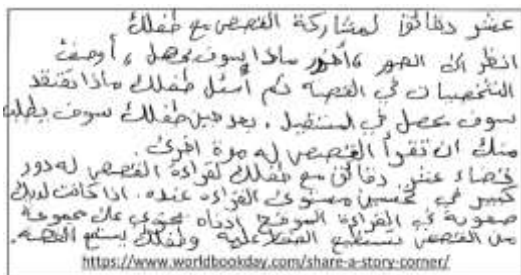 عشر دقائق لمشاركة القصص مع طفلك
انظر الى الصور ماذا سوف يحصل ، أوصف
الشخصيات في القصة ثم أسئل طفلك ماذا تعتقد
سوف يحصل في المستقبل . بعد حين طفلك سوف يطلب
منك ان تقرأ القصص له مرة اخرى .
قضاء عشر دقائق مع طفلك لقراءة القصص له دور
كبير في تحسين مستوى القراءه عنده . اذا كانت لديك
صعوبة في القراءة الموقع ادناه يحتوي على مجموعة
من القصص تستطيع الضغط عليه وطفلك يستمع القصه .
https://www.worldbookday.com/share-a-story-corner/